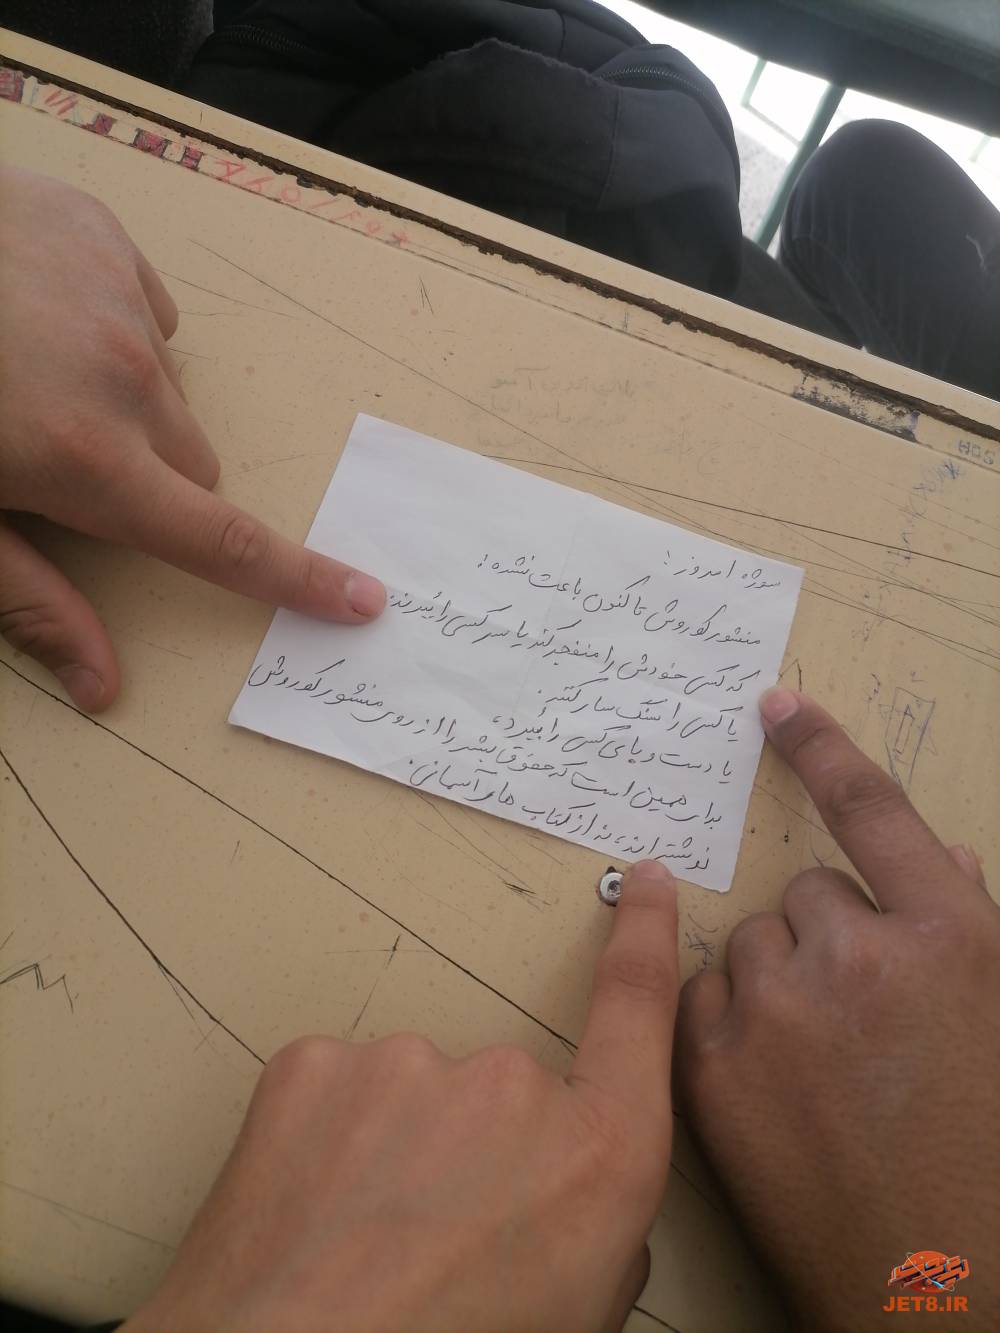 سوژه امروز!
منشور کوروش تا کنون باعث نشده:
که کسی خودش را منفجر کند یا سر کسی را بُبُرند.
یا کسی را سنگ سار کنند.
یا دست و پای کسی را بُبرد،
برای همین است که حقوق بشر را از روی منشور کوروش
نوشته اند، نه از کتاب های آسمانی.
JET8.IR